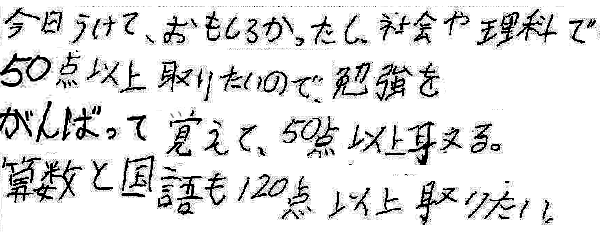 今日うけて、おもしろかったし、社会や理科で
50点以上取りたいので、勉強を
がんばって覚えて、50点以上取る。
算数と国語も120点以上取りたい。